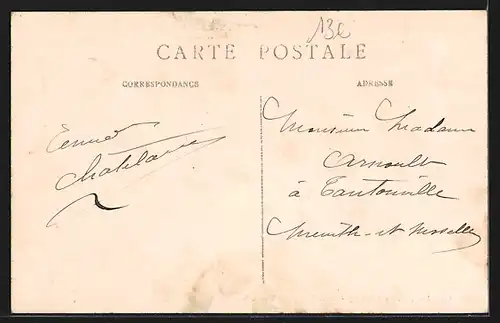 13€
CARTE POSTALE
CORRESPONDANCE
ADRESSE
Monsieur Madame
Arnoult
à Tantonville
Meurthe-et-Moselle